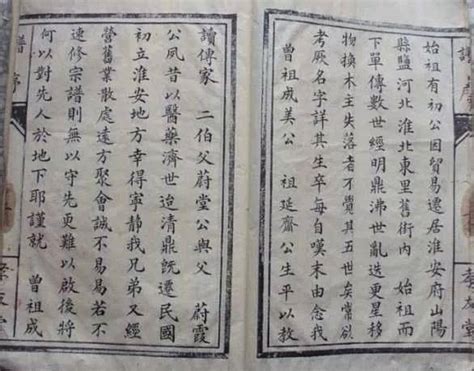 始祖有初公因貿易遷居淮安府山陽
縣鹽河北淮北東里舊街內　始祖而
下單傳數世經明鼎沸世亂迭更星移
物換木主失落者不覺其五世矣常欲
考厥名字詳其生卒每自嘆末由念我
曾祖成美公　祖延齋公生平以教
讀傳家　二伯父蔚堂公與父　蔚霞
公夙昔以醫藥濟世迨清鼎既遷民國
初立淮安地方幸得寧靜我兄弟又經
營舊業散處遠方聚會誠不易易若不
速修宗譜則無以守先更難以啟後將
何以對先人於地下耶謹就　曾祖成
譜序